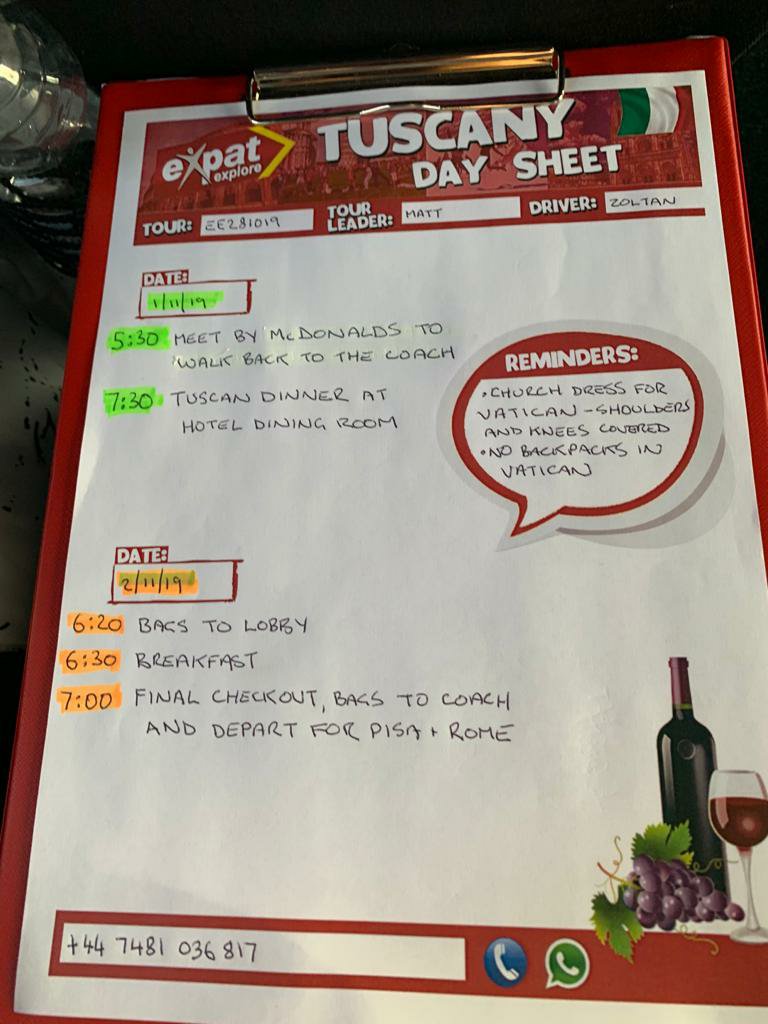 expat explore
TUSCANY
DAY SHEET
TOUR: EE281019 TOUR LEADER: MATT DRIVER: ZOLTAN
DATE:
1/11/19
5:30 MEET BY McDONALDS TO
WALK BACK TO THE COACH
7:30 TUSCAN DINNER AT
HOTEL DINING ROOM
REMINDERS:
• CHURCH DRESS FOR
VATICAN - SHOULDERS
AND KNEES COVERED
• NO BACKPACKS IN
VATICAN
DATE:
2/11/19
6:20 BAGS TO LOBBY
6:30 BREAKFAST
7:00 FINAL CHECKOUT, BAGS TO COACH
AND DEPART FOR PISA + ROME
+44 7481 036 817